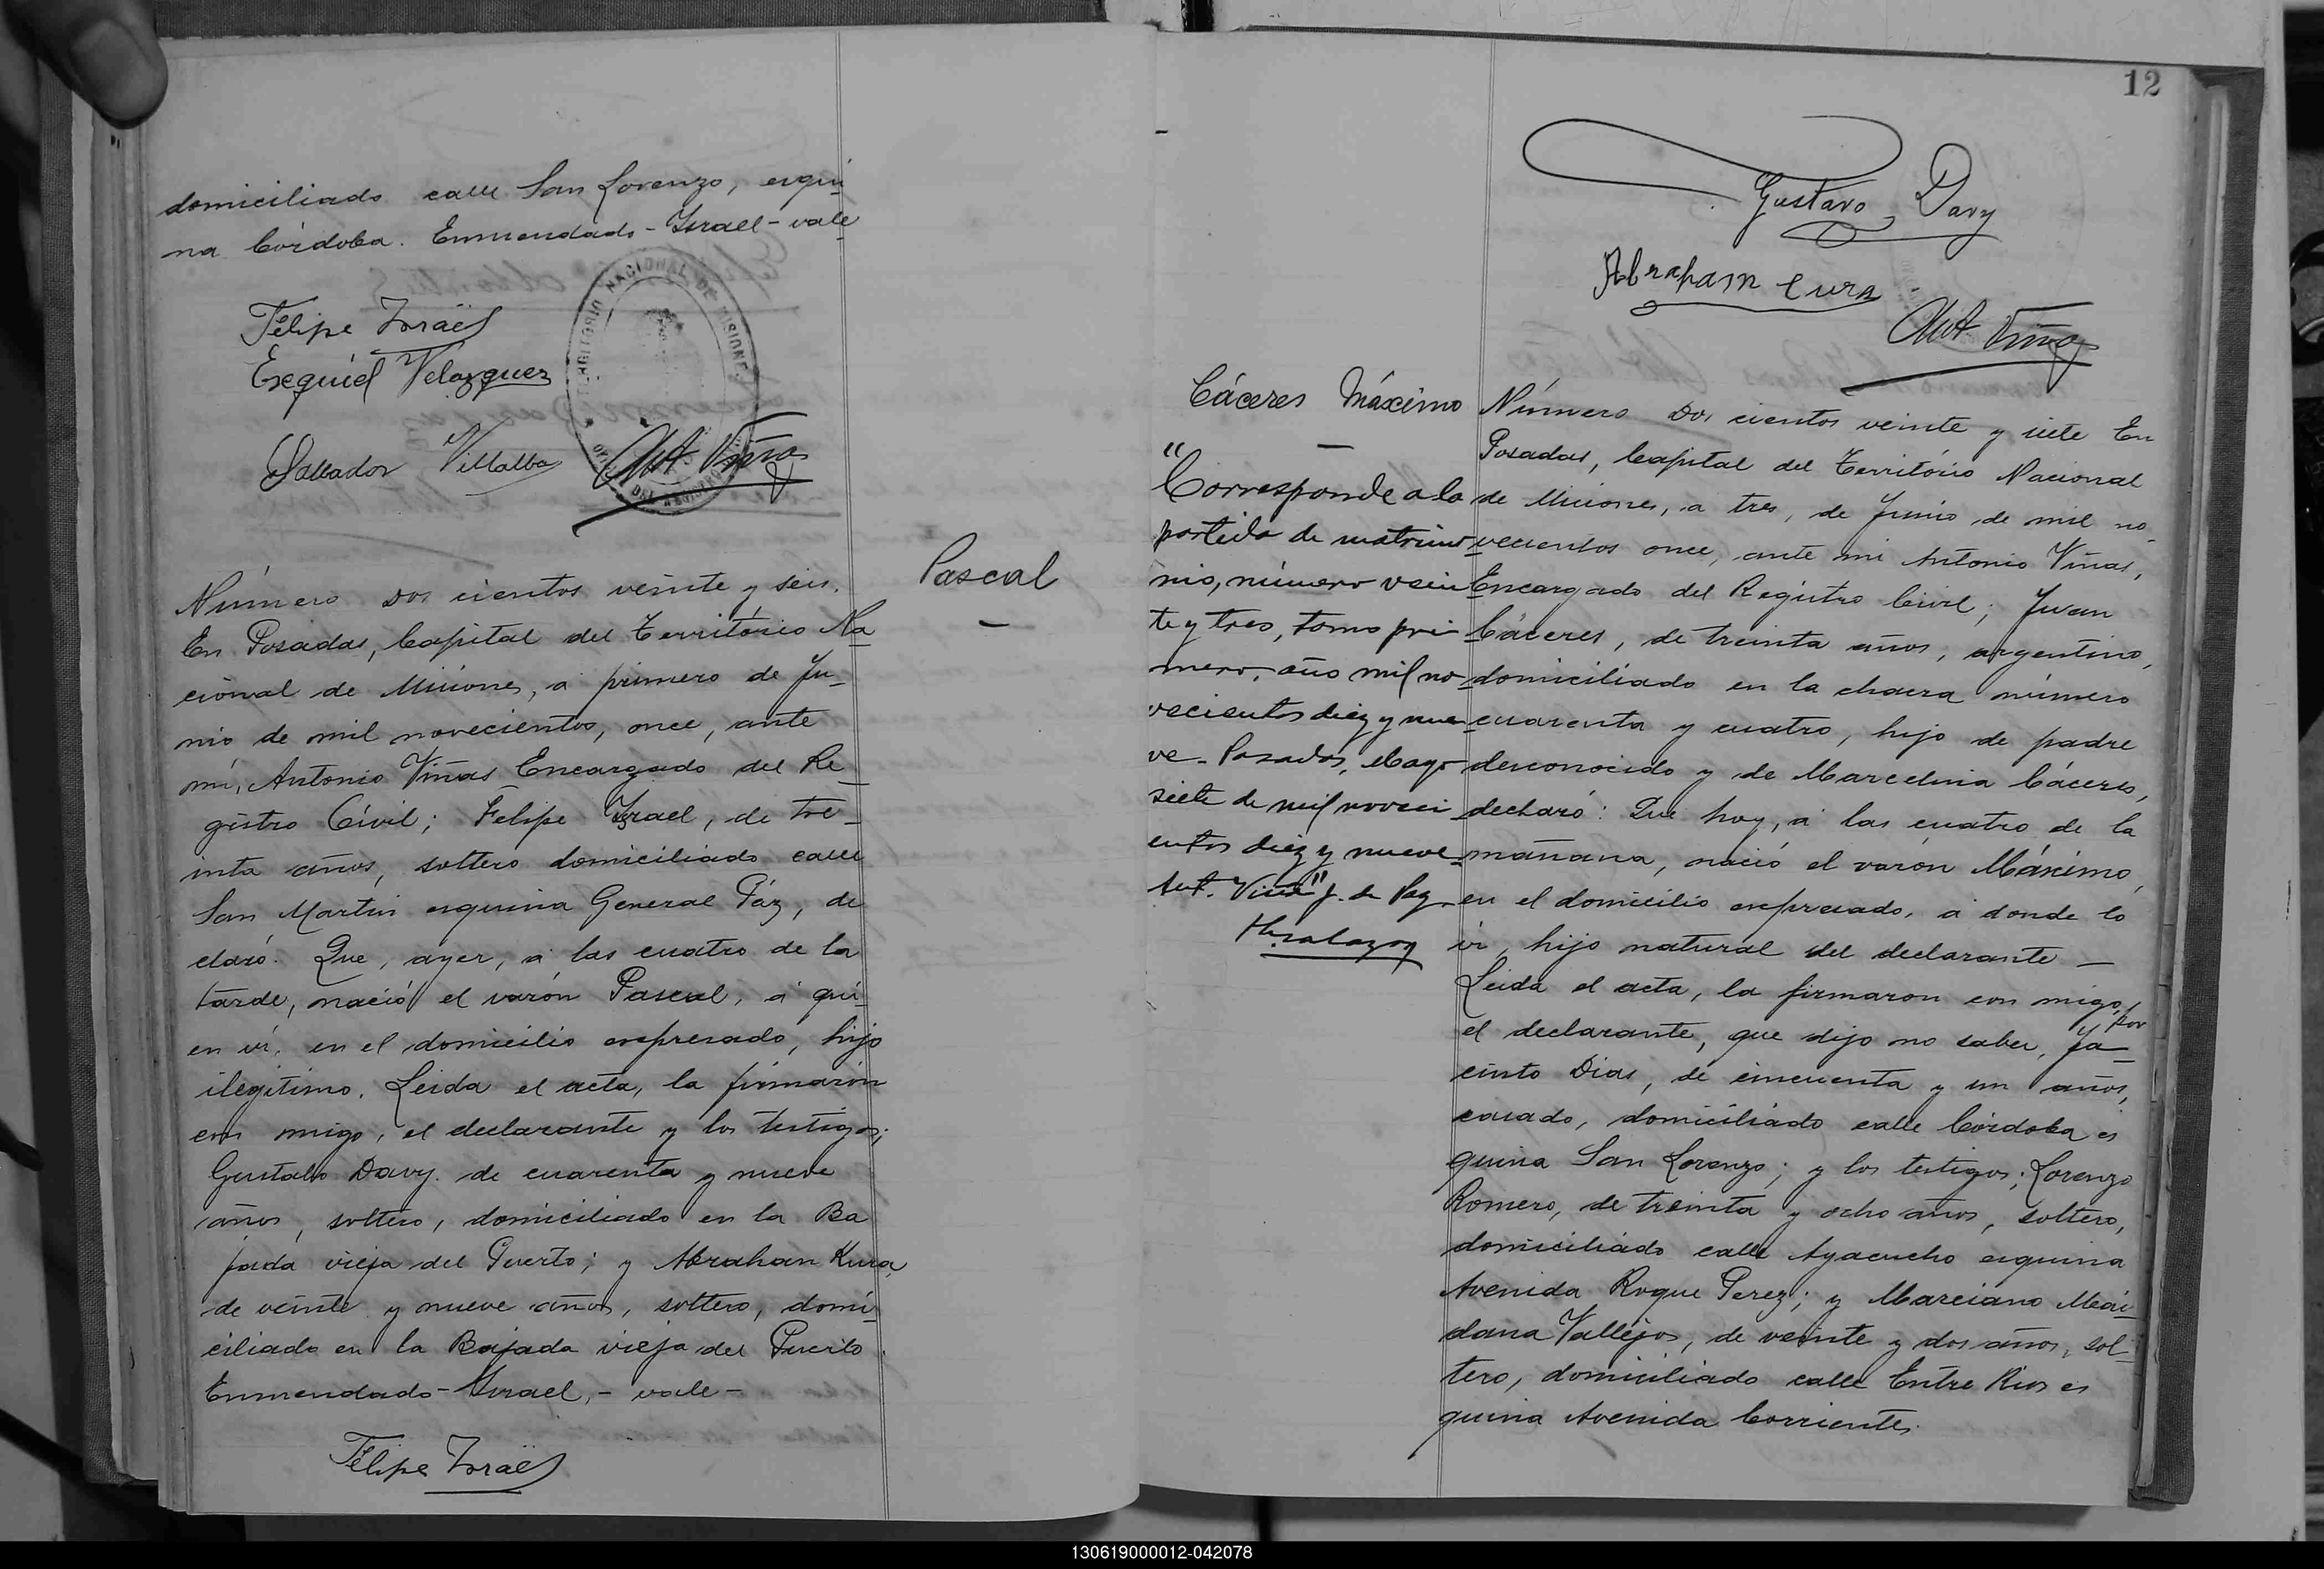 domiciliado calle San Lorenzo, esqui
na Córdoba. Enmendado - Israel - vale
Felipe Israël
Exequiel Velazquez
Salvador Villalba
Ant Viñas
TERRITORIO NACIONAL DE MISIONES
DEL REGISTRO
Pascal
Número dos cientos veinte y seis.
En Posadas, Capital del Território Na
cional de Misiones, á primero de Ju_
nio de mil novecientos, once, ante
mi, Antonio Viñas Encargado del Re_
gistro Civil; Felipe Israel, de tre_
inta años, soltero domiciliado calle
San Martin esquina General Páz, de
claró. Que, ayer, á las cuatro de la
tarde, nació el varón Pascual, á qui_
en ví, en el domicilio expresado, hijo
ilegítimo. Leida el acta, la firmarón
con migo, el declarante y los testigos;
Gustabo Davy. de cuarenta y nueve
años, soltero, domiciliado en la Ba
jada vieja del Puerto; y Abrahan Kura,
de veinte y nueve años, soltero, domi_
ciliado en la Bajada vieja del Puerto.
Enmendado - Israel, - vale -
Felipe Israël
12
Gustavo Davy
Abraham Cura
Ant Viñas
Cáceres Máximo
"Corresponde a la
partida de matrimo_
nio, número vein_
te y tres, tomo pri_
mero, año mil no_
vecientos diez y nue
ve - Posadas, Mayo
siete de mil noveci
entos diez y nueve_
Ant. Viñas" J. de Paz
Número dos cientos veinte y siete En
Posadas, Capital del Território Nacional
de Misiones, á tres, de Junio de mil no_
vecientos once, ante mi Antonio Viñas,
Encargado del Registro Civil; Juan
Cáceres, de treinta años, argentino,
domiciliado en la chacra número
cuarenta y cuatro, hijo de padre
desconocido y de Marcelina Cáceres,
declaró: Que hoy, á las cuatro de la
mañana, nació el varón Máximo,
en el domicilio expresado, á donde lo
ví, hijo natural del declarante _
Leida el acta, la firmaron con migo, por
el declarante, que dijo no saber, Ja_
cinto Dias, de cincuenta y un años,
casado, domiciliado calle Córdoba es
quina San Lorenzo; y los testigos; Lorenzo
Romero, de treinta y ocho años, soltero,
domiciliado calle Ayacucho esquina
Avenida Roque Perez; y Marciano Mai
dana Vallejos, de veinte y dos años, sol_
tero, domiciliado calle Entre Rios es
quina Avenida Corrientes.
130619000012-042078